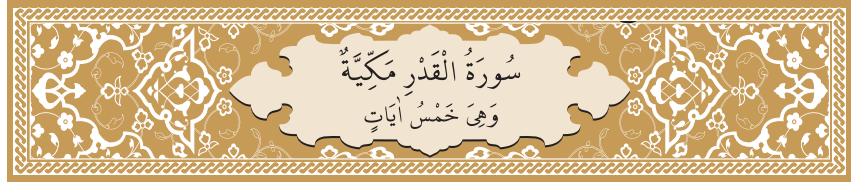 سُورَةُ الْقَدْرِ مَكِّيَّةٌ
وَهِيَ خَمْسُ اٰيَاتٍ